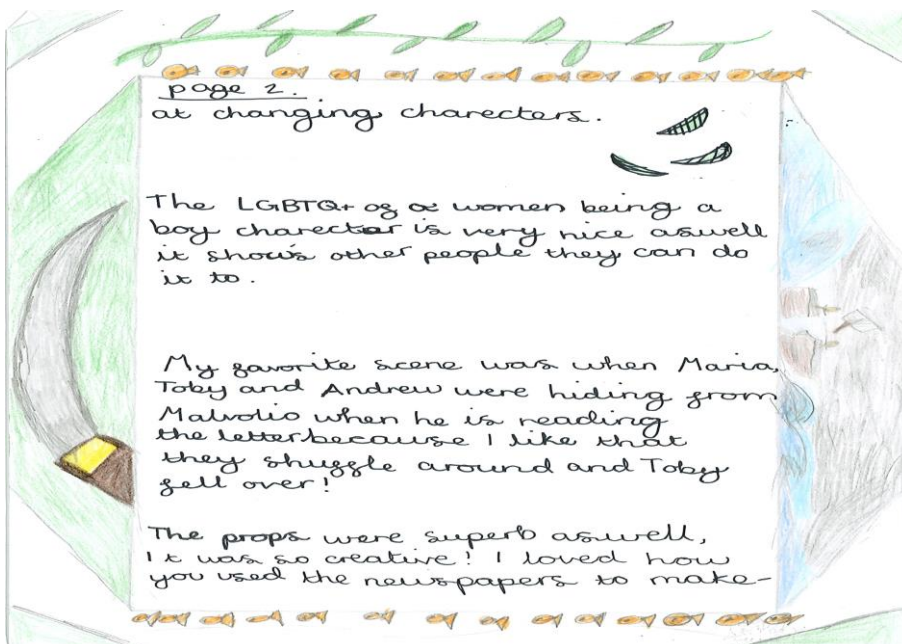 page 2.
at changing charecters.
The LGBTQ+ of a women being a
boy charector is very nice aswell
it shows other people they can do
it to.
My favorite scene was when Maria,
Toby and Andrew were hiding from
Malvolio when he is reading
the letter because I like that
they shuffle around and Toby
fell over!
The props were superb aswell,
It was so creative! I loved how
you used the newspapers to make-